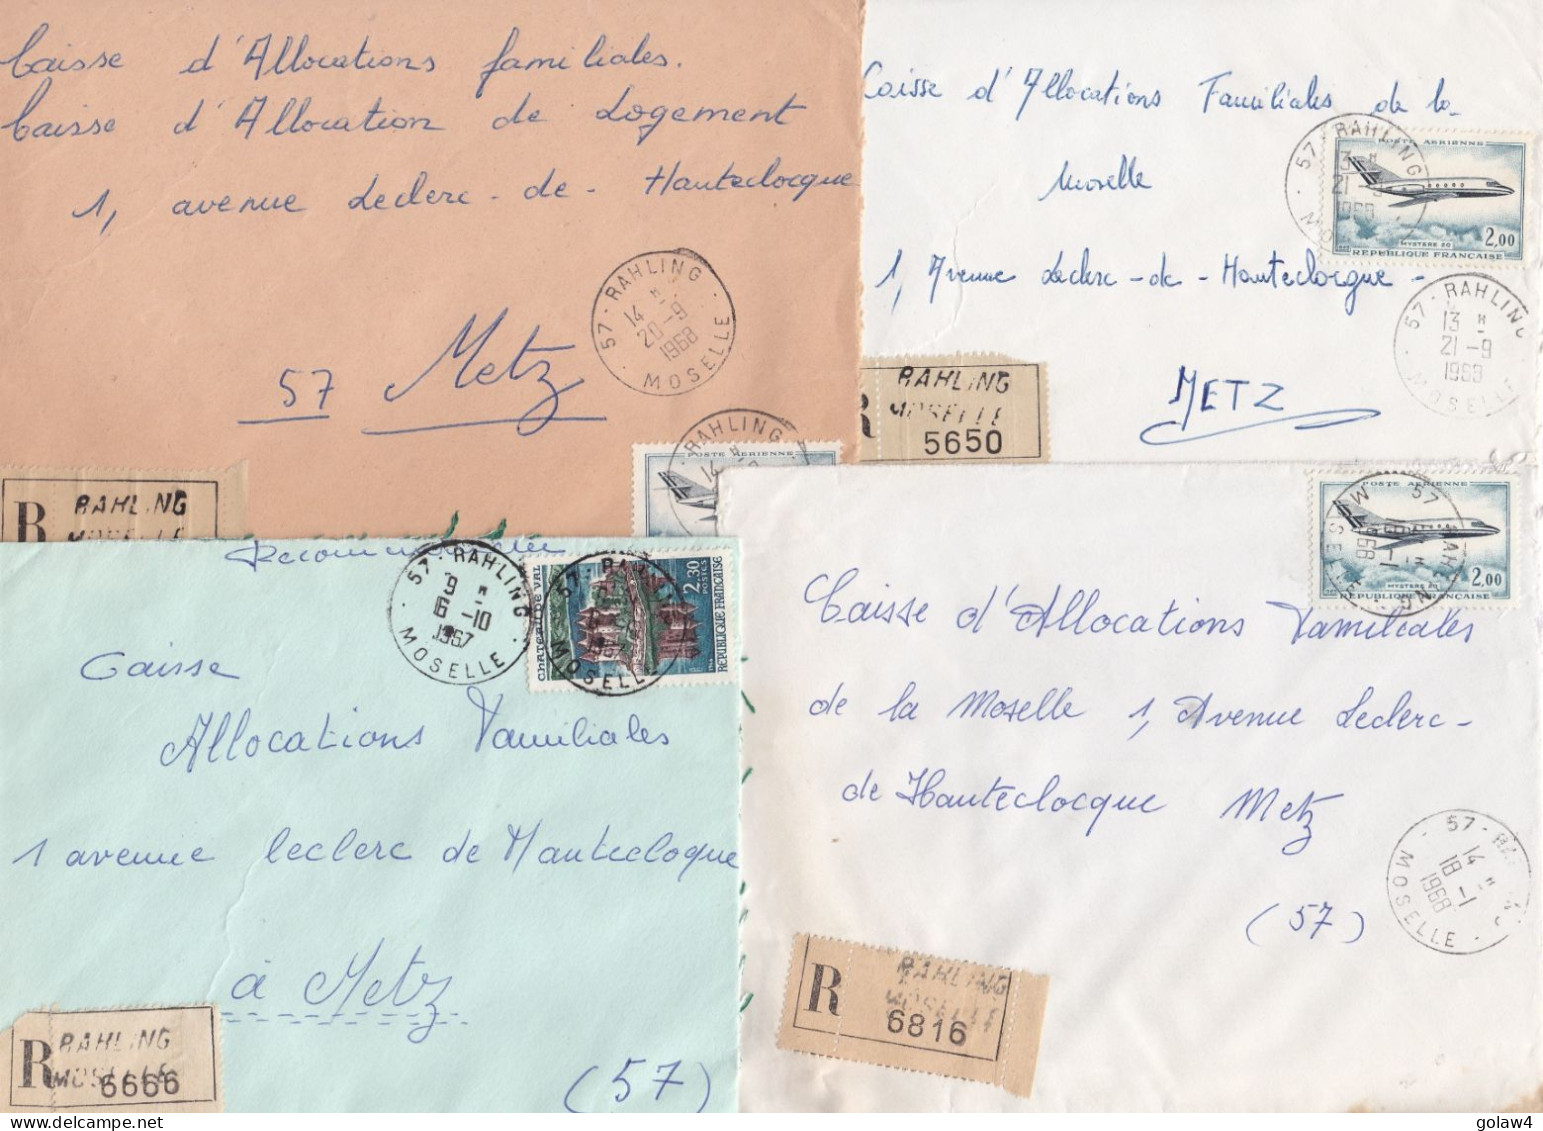 Caisse d'Allocations familiales.
Caisse d'Allocation de Logement
1, avenue Leclerc-de-Hauteclocque
57 Metz
57-RAHLING
14 H
20-9
1968
MOSELLE
R RAHLING
MOSELLE
RAHLING
14 H
POSTE AERIENNE
Caisse d'Allocations Familiales de la
Moselle
1, Avenue Leclerc-de-Hauteclocque-
METZ
57-RAHLING
13 H
21-9
1968
MOSELLE
POSTE AERIENNE
2,00
MYSTERE 20
REPUBLIQUE FRANÇAISE
57-RAHLING
13 H
21-9
1968
MOSELLE
RAHLING
MOSELLE
5650
Recommandée
57-RAHLING
9 H
6-10
1967
MOSELLE
57-RAHLING
1967
MOSELLE
2,30
POSTES
REPUBLIQUE FRANÇAISE
CHATEAU DE VAL
Caisse
Allocations Familiales
1 avenue leclerc de Hautecloque
à Metz
(57)
R RAHLING
MOSELLE
6666
57 RAHLING
1968
MOSELLE
POSTE AERIENNE
2,00
MYSTERE 20
REPUBLIQUE FRANÇAISE
Caisse d'Allocations Familiales
de la Moselle 1, Avenue Leclerc-
de Hauteclocque Metz
(57)
57-RA
14 H
18-1
1968
MOSELLE
R RAHLING
MOSELLE
6816
golaw4